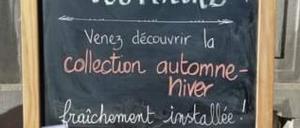 Venez découvrir la
collection automne-
hiver
fraîchement installée !